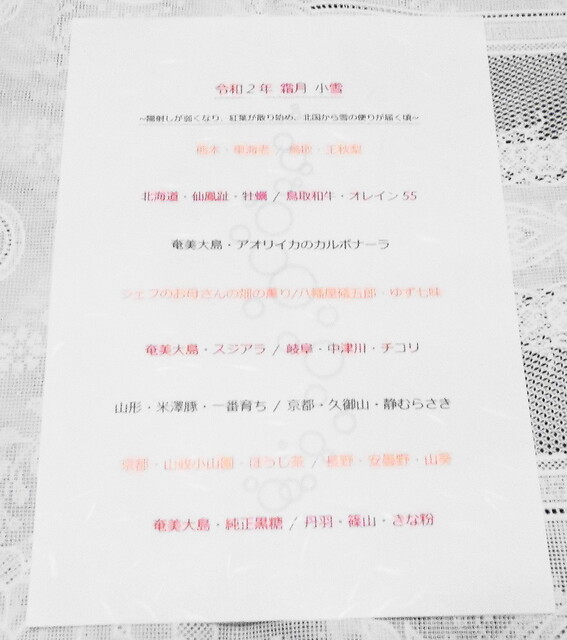 令和2年 霜月 小雪
~陽射しが弱くなり、紅葉が散り始め、北国から雪の便りが届く頃~
熊本・車海老 / 鳥取・王秋梨
北海道・仙鳳趾・牡蠣 / 鳥取和牛・オレイン55
奄美大島・アオリイカのカルボナーラ
シェフのお母さんの畑の薫り/八幡屋礒五郎・ゆず七味
奄美大島・スジアラ / 岐阜・中津川・チコリ
山形・米澤豚・一番育ち / 京都・久御山・静むらさき
京都・山政小山園・ほうじ茶 / 長野・安曇野・山葵
奄美大島・純正黒糖 / 丹羽・篠山・きな粉